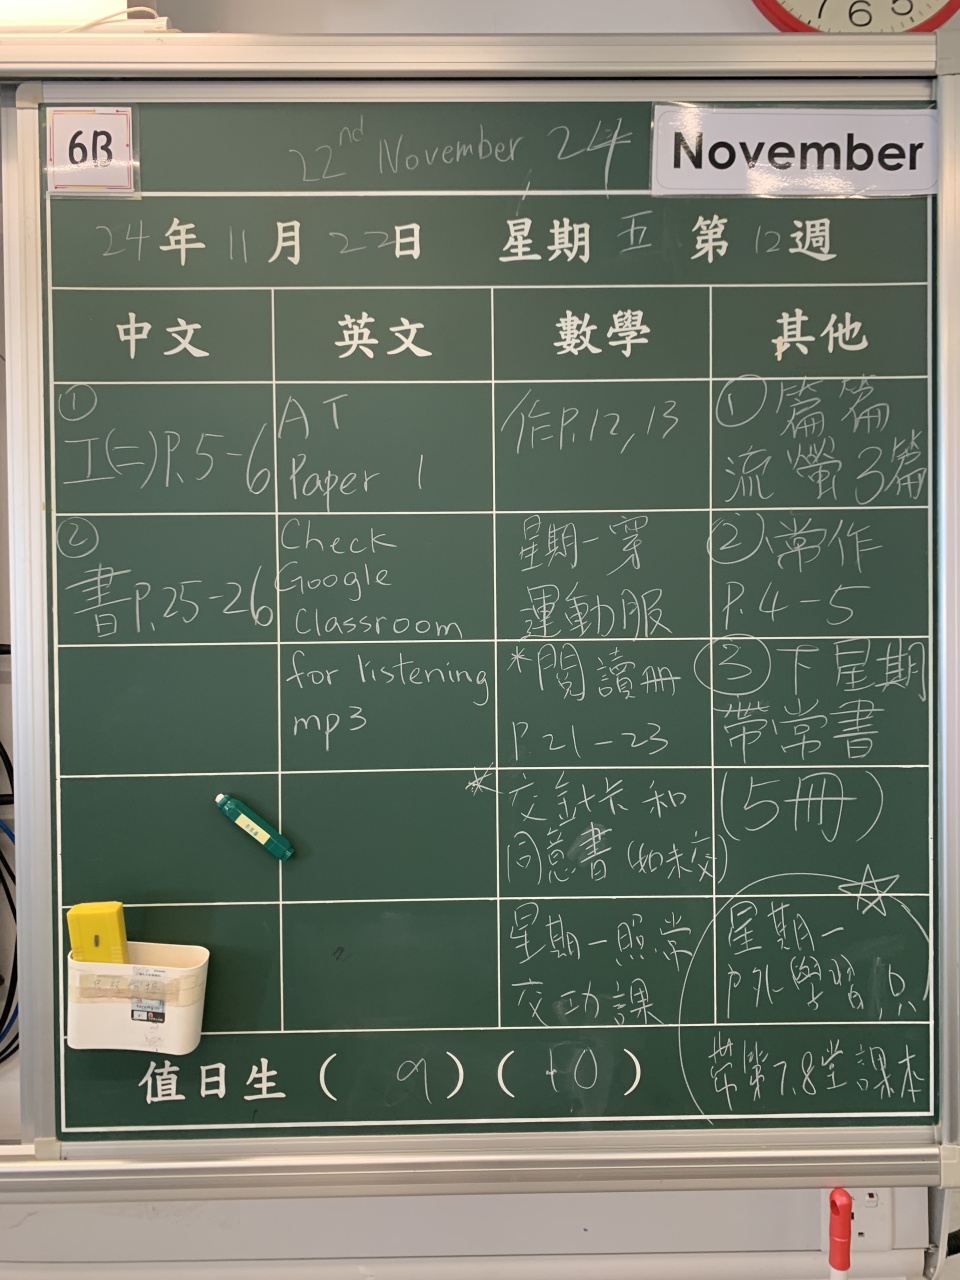 7 6 5
6B
22nd November 24
November
24年11月22日 星期五 第12週
中文
英文
數學
其他
①
工(二)P.5-6
AT
Paper 1
作P.12,13
①篇篇
流螢3篇
②
書P.25-26
Check
Google
Classroom
星期一穿
運動服
②常作
P.4-5
for listening
mp3
*閱讀冊
P.21-23
③下星期
帶常書
*交針卡和
同意書(如未交)
(5冊)
星期一照常
交功課
☆
星期一
戶外學習,只
帶第7.8堂課本
值日生( 9 )( 10 )